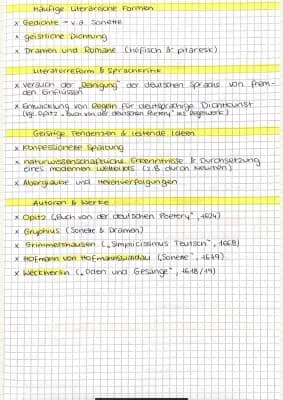 Häufige literarische Formen
x Gedichte → v.a. Sonette
x geistliche Dichtung
x Dramen und Romane (höfisch & pikaresk)
Literaturreform & Sprachkritik
x Versuch der „Reinigung" der deutschen Sprache von frem-
den Einflüssen
x Entwicklung von Regeln für deutschsprachige Dichtkunst
(vgl. Opitz „Buch von der deutschen Poeterey" als Regelwerk)
Geistige Tendenzen & leitende Ideen
x Konfessionelle Spaltung
x naturwissenschaftliche Erkenntnisse & Durchsetzung
eines modernen Weltbilds (z.B. durch Newton)
x Aberglaube und Hexenverfolgungen
Autoren & Werke
x Opitz („Buch von der deutschen Poeterey", 1624)
x Gryphius (Sonette & Dramen)
x Grimmelshausen („Simplicissimus Teutsch", 1668)
x Hofmann von Hofmannswaldau („Sonette", 1679)
x Weckherlin („Oden und Gesänge", 1618/19)